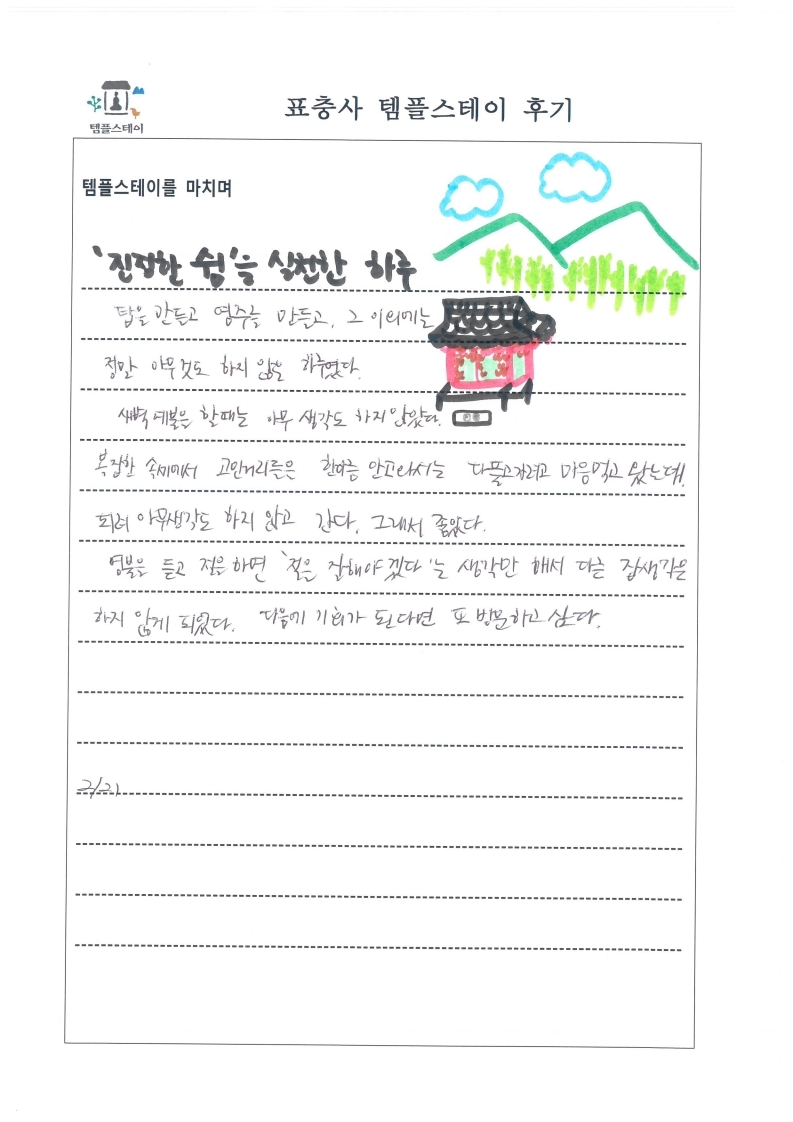 템플스테이
표충사 템플스테이 후기
템플스테이를 마치며
'진정한 쉼'을 실천한 하루
탑을 만들고 염주를 만들고, 그 이외에는
정말 아무것도 하지 않은 하루였다.
새벽 예불을 할때는 아무 생각도 하지 않았다.
복잡한 속세에서 고민거리들은 한아름 안고와서는 다풀고가려고 마음먹고 왔는데,
되려 아무생각도 하지 않고 간다. 그래서 좋았다.
염불을 듣고 절을 하면 '절을 잘해야겠다'는 생각만 해서 다른 잡생각은
하지 않게 되었다. 다음에 기회가 된다면 또 방문하고 싶다.
2/21